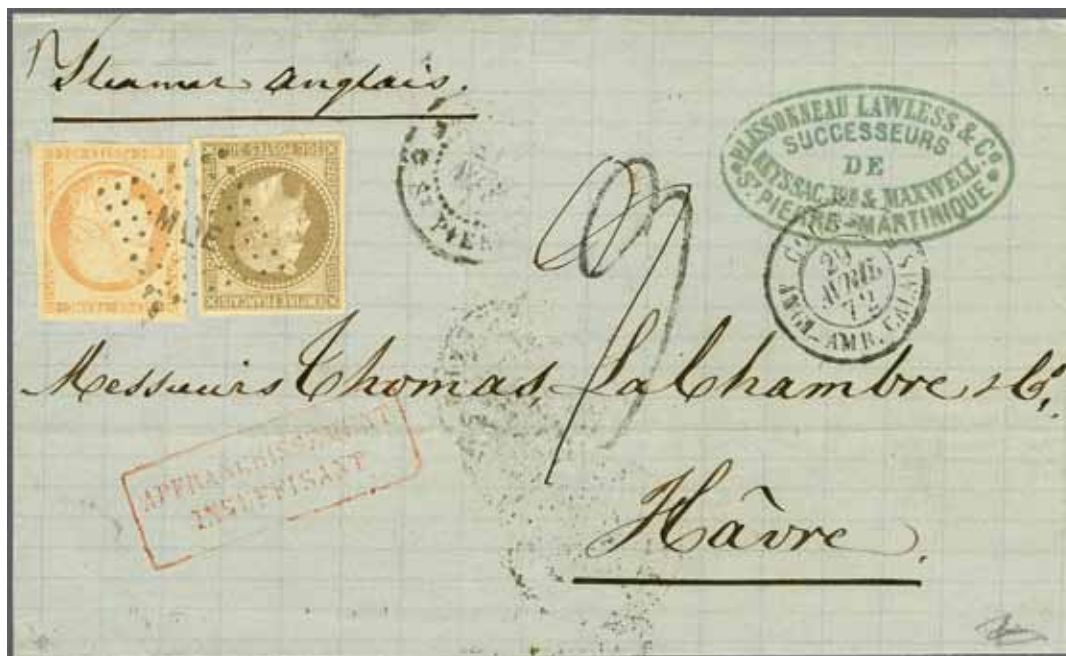 Steamer anglais.
PLISSONNEAU LAWLESS & Co
SUCCESSEURS
DE
REYSSAC & MAXWELL
St PIERRE-MARTINIQUE
MQE
St PIERRE
29
AVRIL
72
ANGL. AMB. CALAIS
Messieurs Thomas, LaChambre & Co,
AFFRANCHISSEMENT
INSUFFISANT
Hâvre.